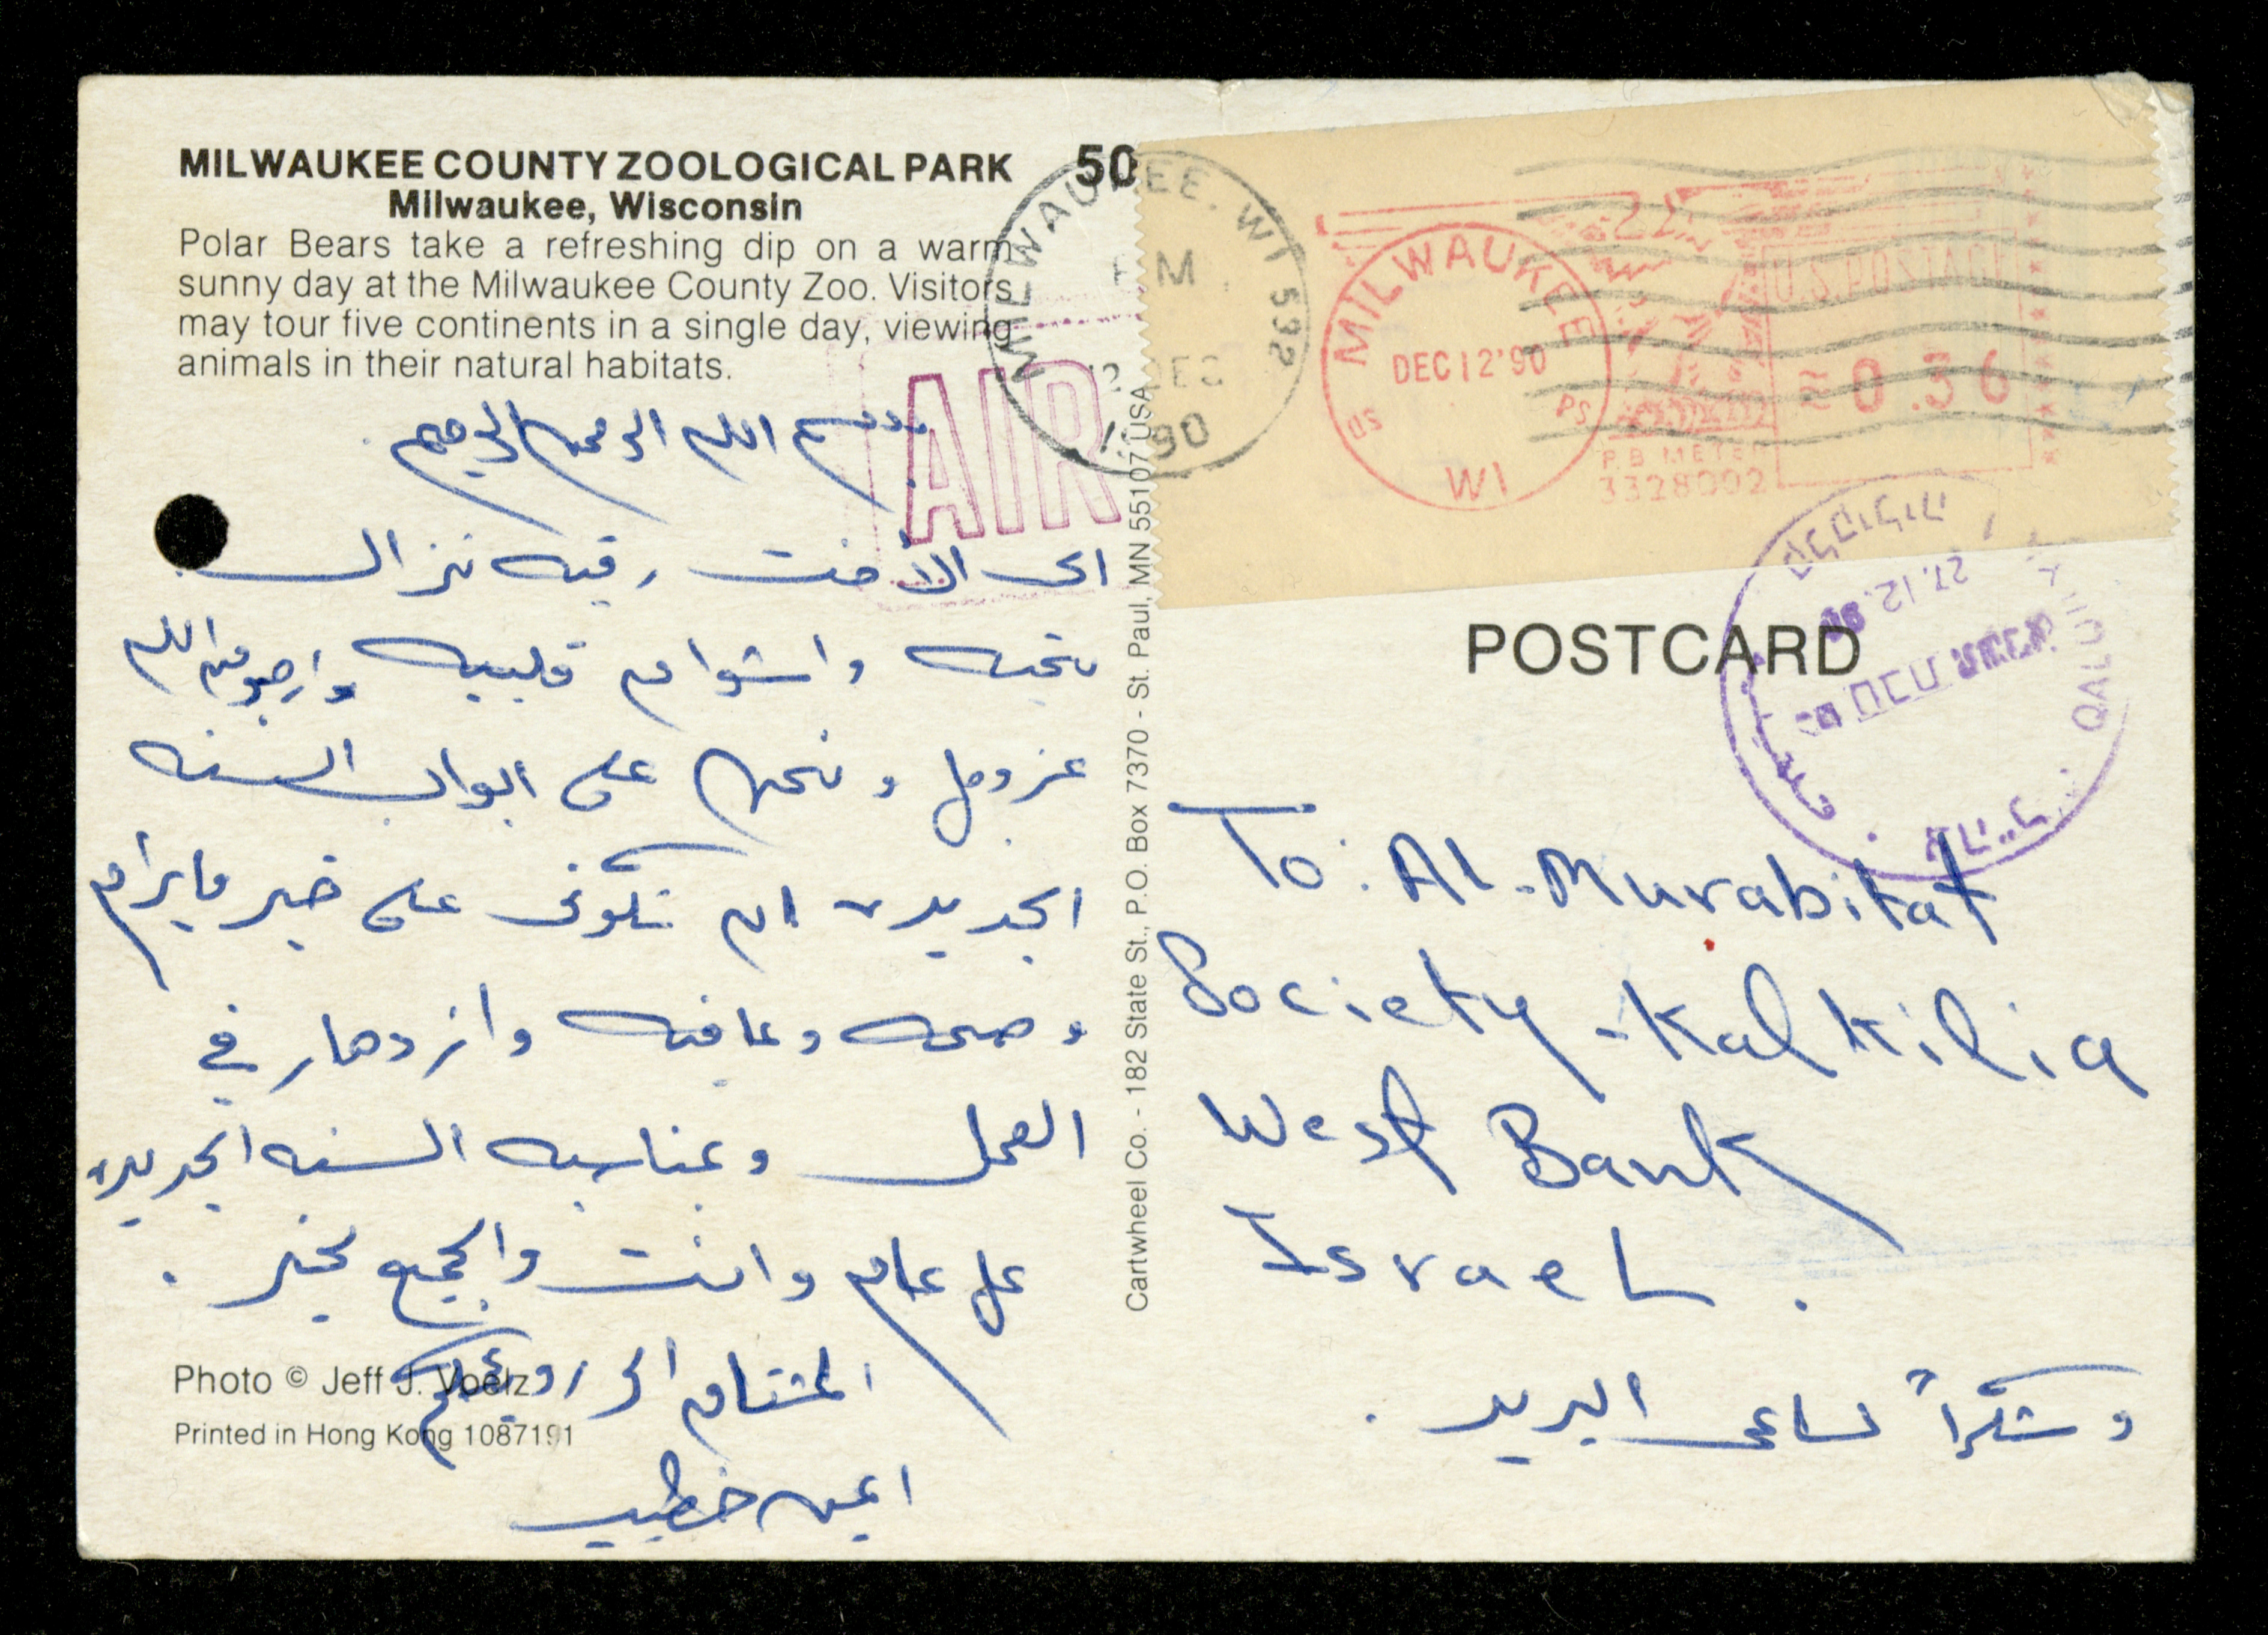 MILWAUKEE COUNTY ZOOLOGICAL PARK
Milwaukee, Wisconsin
Polar Bears take a refreshing dip on a warm
sunny day at the Milwaukee County Zoo. Visitors
may tour five continents in a single day, viewing
animals in their natural habitats.
50
MILWAUKEE, WI 532
PM
12 DEC
1990
AIR
MILWAUKEE
DEC 12 '90
WI
U.S. POSTAGE
0.36
P B METER
3328002
27.12.90
קלקיליה
QALQILIYA
قلقيلية
بسم الله الرحمن الرحيم
الى الأخت رقيه نزال
تحيه واشواق قلبيه وارجو من الله
عز وجل ونحن على ابواب السنه
الجديده ان تكوني على خير مايرام
وصحه وعافيه وازدهار في
العمل وبمناسبه السنه الجديده
كل عام وانت والجميع بخير .
المشتاق الى رؤيتكم
ايمن خطيب
Photo © Jeff J. Voelz
Printed in Hong Kong 1087191
Cartwheel Co. - 182 State St., P.O. Box 7370 - St. Paul, MN 55107 USA
POSTCARD
To: Al-Murabitat
Society - Kalkilia
West Bank
Israel.
وشكراً لساعي البريد .